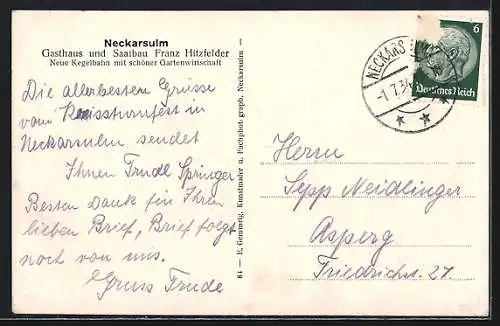 Neckarsulm
Gasthaus und Saalbau Franz Hitzfelder
Neue Kegelbahn mit schöner Gartenwirtschaft
Die allerbesten Grüsse
vom Kreisturnfest in
Neckarsulm sendet
Ihnen Trudl Springer
Besten Dank für Ihren
lieben Brief, Brief folgt
noch von uns.
Gruss Trude
84 — E. Gemmrig, Kunstmaler u. Fachphot. graph, Neckarsulm —
NECKARS
-1.7.34
6
Deutsches Reich
Herrn
Sepp Neidlinger
Asperg
Friedrichst. 27.